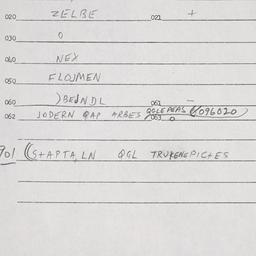 020 ZELBE 021 +
030 O
040 NEX
050 FLOJMEN
060 )BEWNDL 061 –
062 JODERN QAP ARBES QGLEPEAS 063 O (096020)
901 (S+APTA,LN QGL TRUKENEPIC+ES